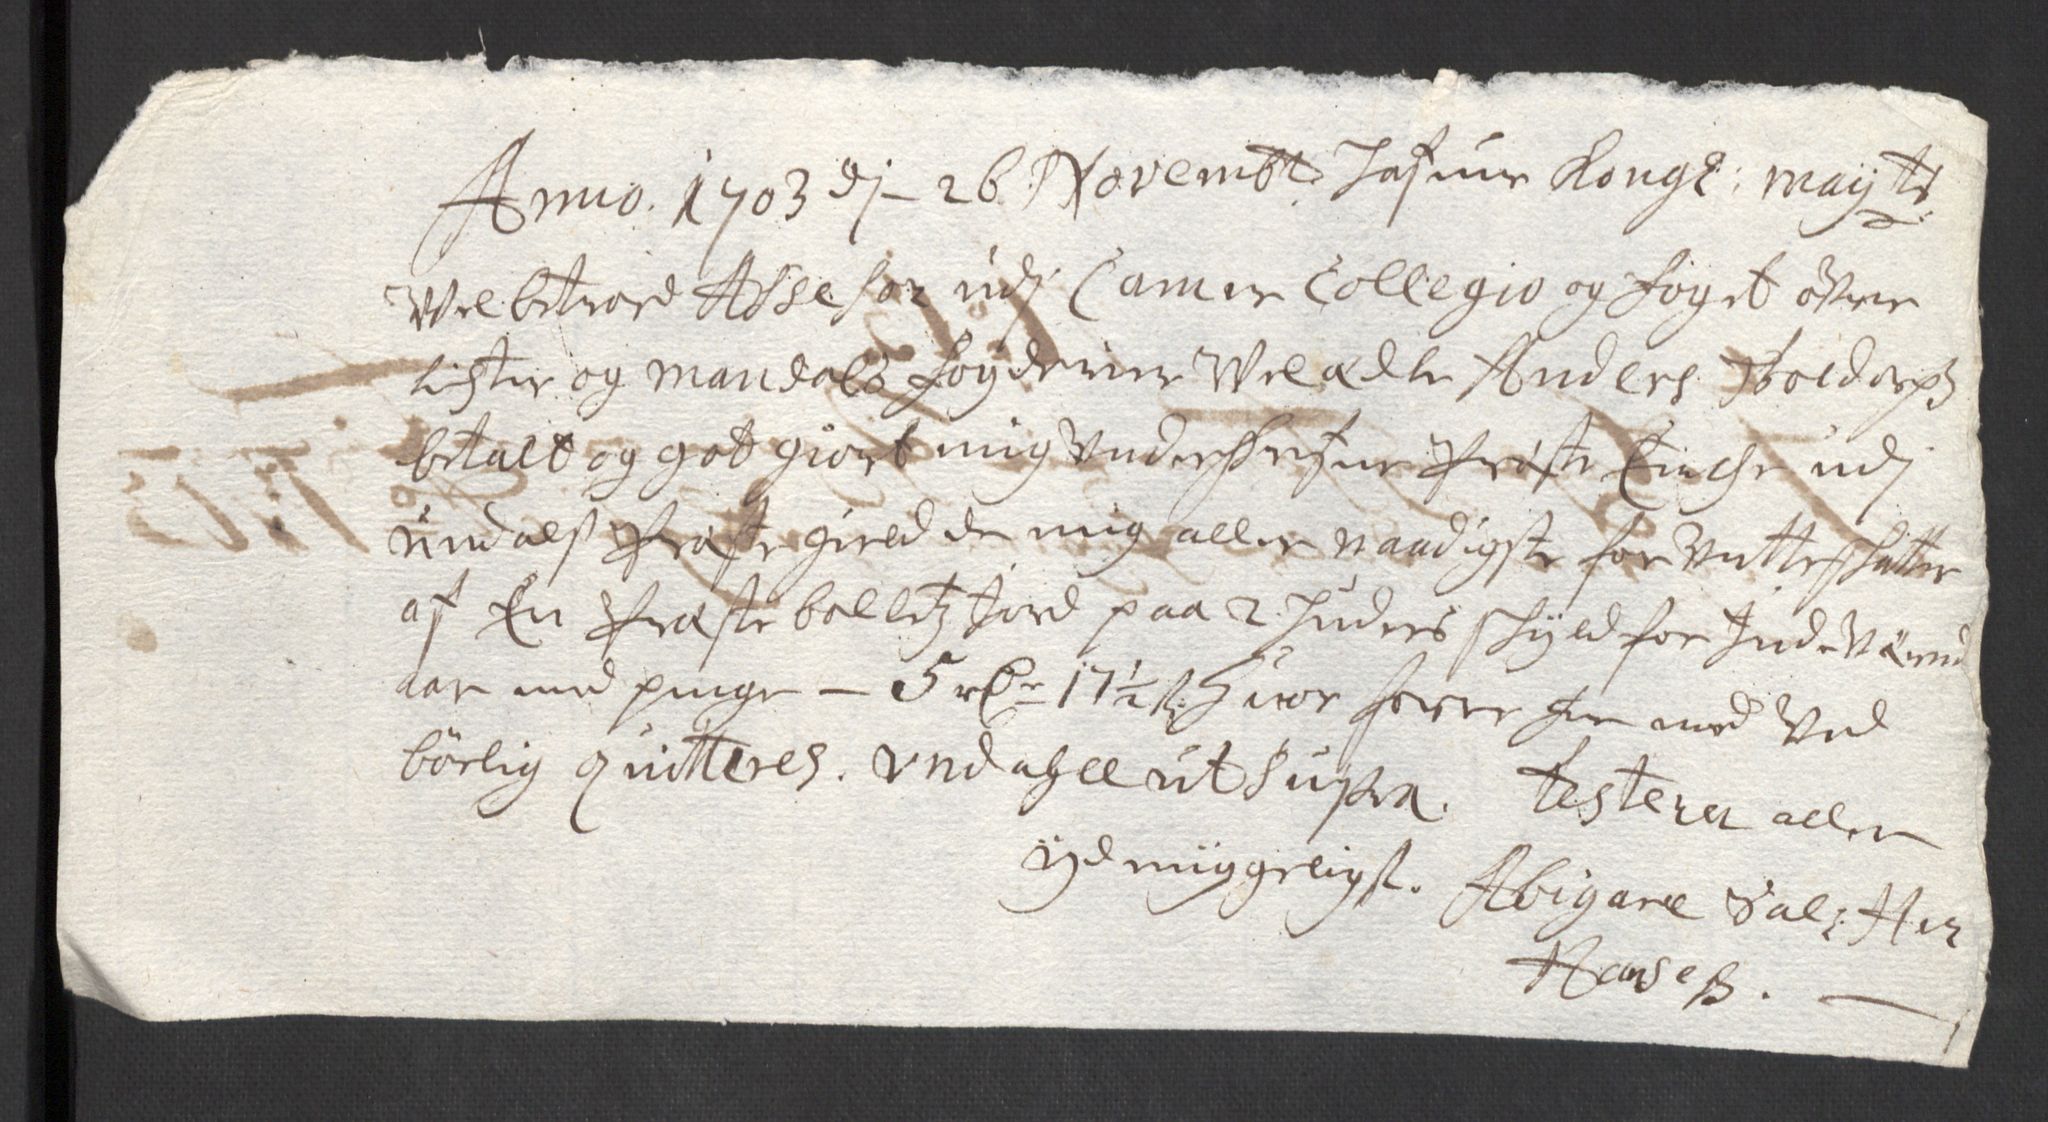 Anno. 1703 dj - 26 Novembr. Hafuer Kongl: Mayts:
Velbetroed Assessor udj Camer Collegio og foget ofver
Lister og Mandals fogderier Velædle Anders Boldorph
betalt og got giort mig Underskrefne Præste Encke udj
Undals Præste gield de mig aller naadigste for Unte Skatter
af En Præste bolletz Jord paa 2 Huders Skyld for Inde Værend
aar med penge – 5 rdr 17½ s; Huor forre her med Ved
börlig quitteres. Undahll ut Supra. Testerer aller
ydmyggeligst. Abigael Sal: Her
Hanseß.